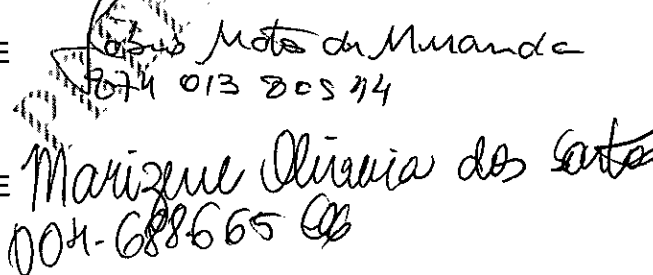 E Mota de Miranda
074 013 805 44
E Marizene Oliveira dos Santos
004-688665 06